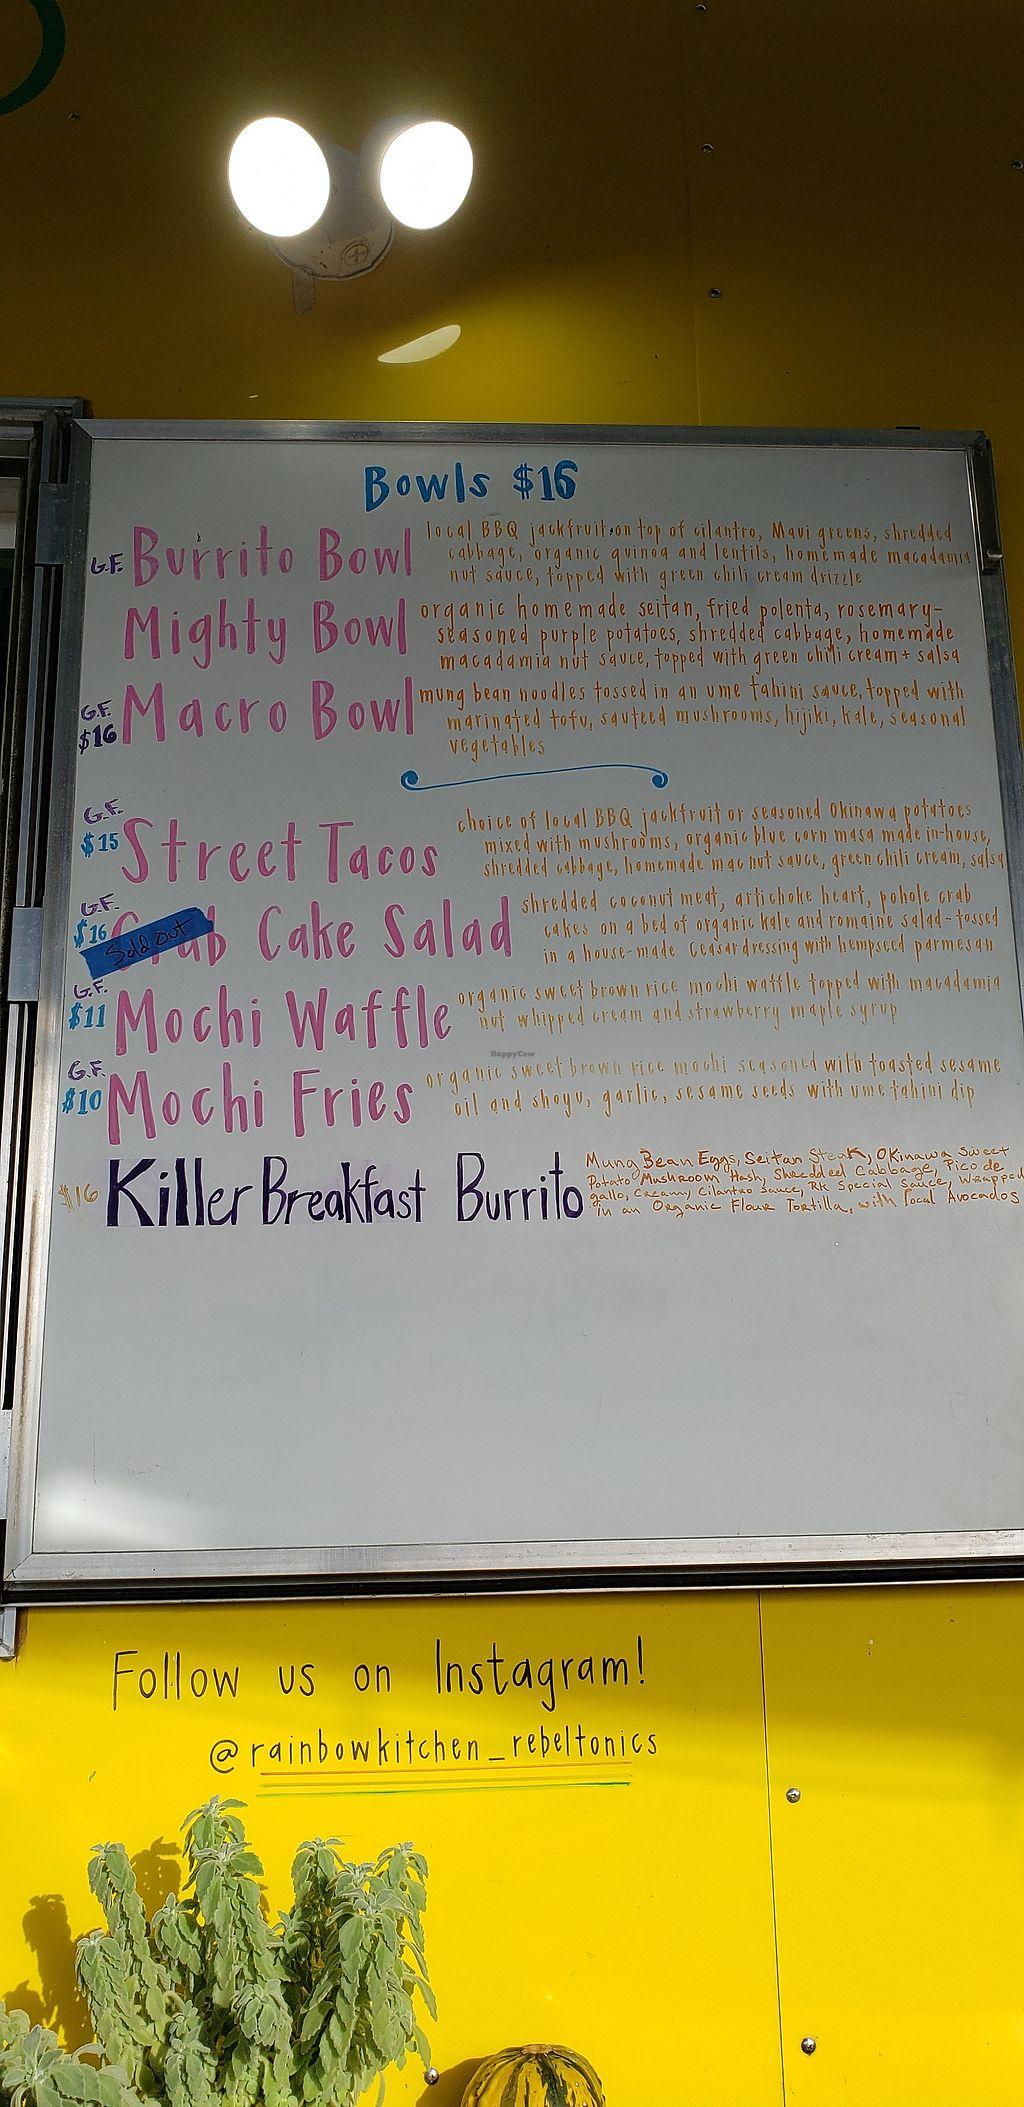 Bowls $16
G.F. Burrito Bowl
local BBQ jackfruit on top of cilantro, Maui greens, shredded
cabbage, organic quinoa and lentils, homemade macadamia
nut sauce, topped with green chili cream drizzle
Mighty Bowl
organic homemade seitan, fried polenta, rosemary-
seasoned purple potatoes, shredded cabbage, homemade
macadamia nut sauce, topped with green chili cream + salsa
G.F.
$16 Macro Bowl
mung bean noodles tossed in an ume tahini sauce, topped with
marinated tofu, sauteed mushrooms, hijiki, kale, seasonal
vegetables
G.F.
$15 Street Tacos
choice of local BBQ jackfruit or seasoned Okinawa potatoes
mixed with mushrooms, organic blue corn masa made in-house,
shredded cabbage, homemade mac nut sauce, green chili cream, salsa
G.F.
$16 Crab Cake Salad
Sold out
shredded coconut meat, artichoke heart, pohole crab
cakes on a bed of organic kale and romaine salad-tossed
in a house-made Ceasar dressing with hempseed parmesan
G.F.
$11 Mochi Waffle
organic sweet brown rice mochi waffle topped with macadamia
nut whipped cream and strawberry maple syrup
HappyCow
G.F.
$10 Mochi Fries
organic sweet brown rice mochi seasoned with toasted sesame
oil and shoyu, garlic, sesame seeds with ume tahini dip
$16 Killer Breakfast Burrito
Mung Bean Eggs, Seitan Steak, Okinawa Sweet
Potato Mushroom Hash, Shredded Cabbage, Pico de
gallo, Creamy Cilantro Sauce, RK Special Sauce, Wrapped
in an Organic Flour Tortilla, with local Avocados
Follow us on Instagram!
@rainbowkitchen_rebeltonics